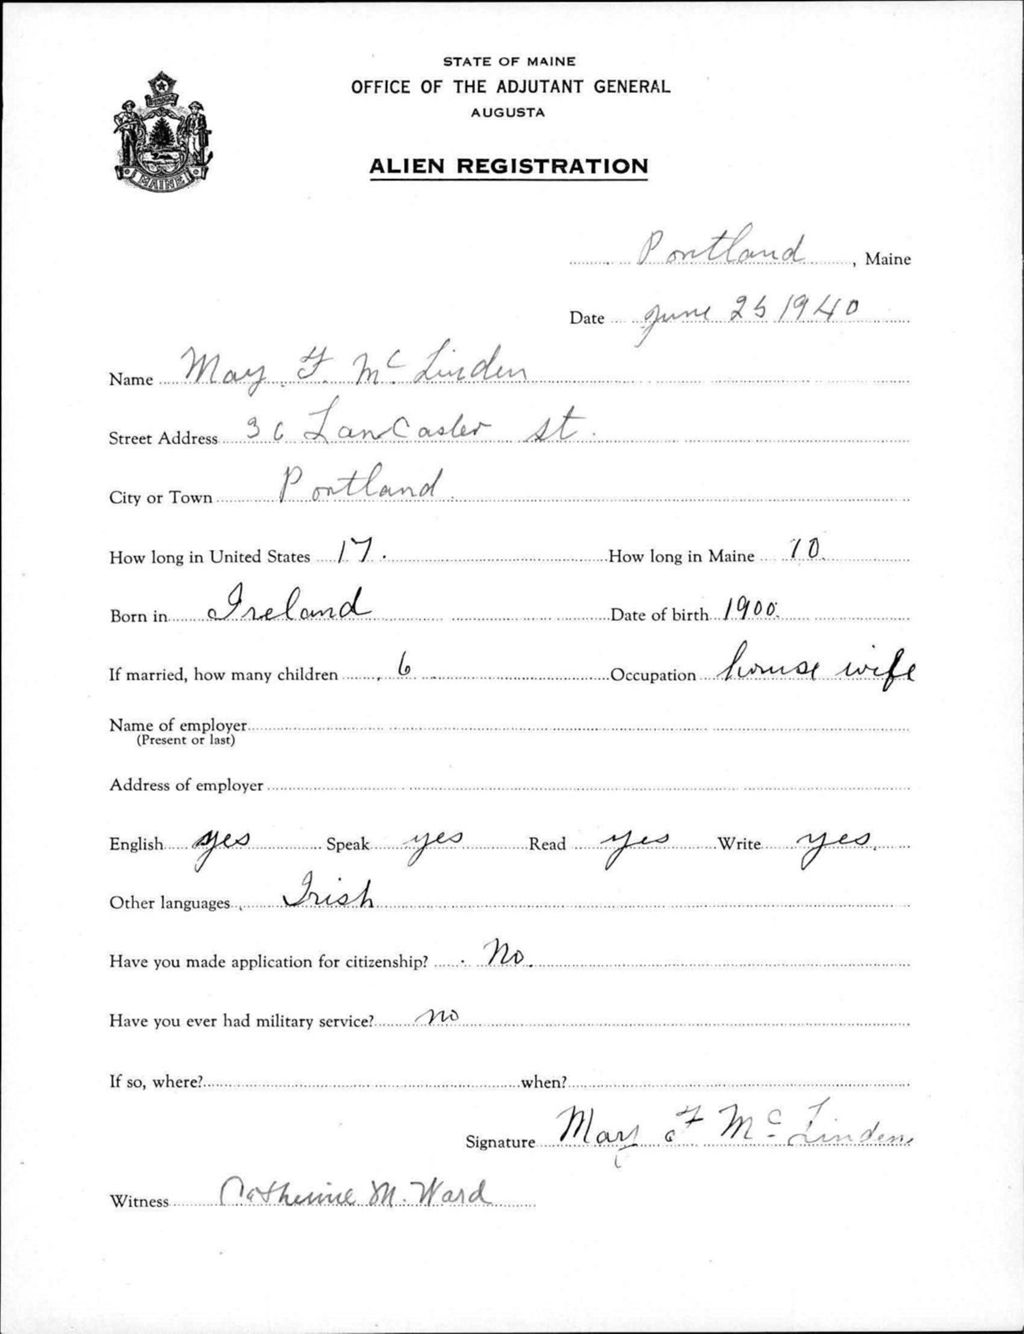 STATE OF MAINE
OFFICE OF THE ADJUTANT GENERAL
AUGUSTA
MAINE
ALIEN REGISTRATION
Portland, Maine
Date June 25 1940
Name Mary F. Mc Linden
Street Address 36 LanCaster st.
City or Town Portland
How long in United States 17. How long in Maine 10
Born in Ireland Date of birth 1900.
If married, how many children 6 Occupation house wife
Name of employer
(Present or last)
Address of employer
English yes Speak yes Read yes Write yes.
Other languages Irish
Have you made application for citizenship? No.
Have you ever had military service? no
If so, where? when?
Signature Mary F Mc Linden
Witness Catherine M. Ward